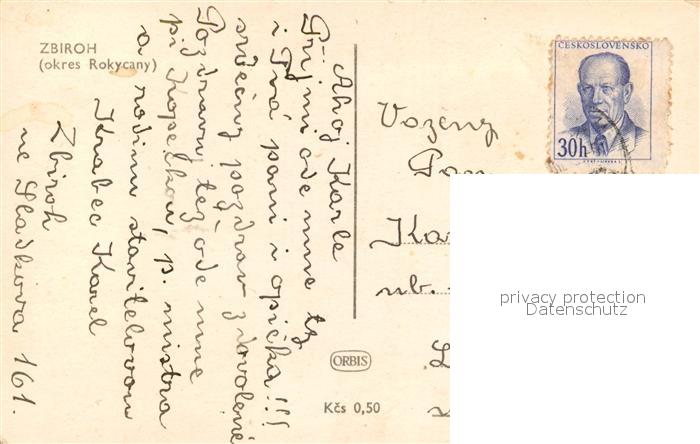 ZBIROH
(okres Rokycany)
Ahoj Karle
Přijmi ode mne tz
i Tvá paní i opička!!!
srdečný pozdrav z dovolené
Pozdravuj tez ode mne
pí Kopeckou, p. mistra
a rodinu stavitelovou
Krabec Karel
Zbiroh
ul Sládkova 161.
ČESKOSLOVENSKO
30h
Vazeny
Pan
Ka
ub.
ORBIS
Kčs 0,50
privacy protection
Datenschutz